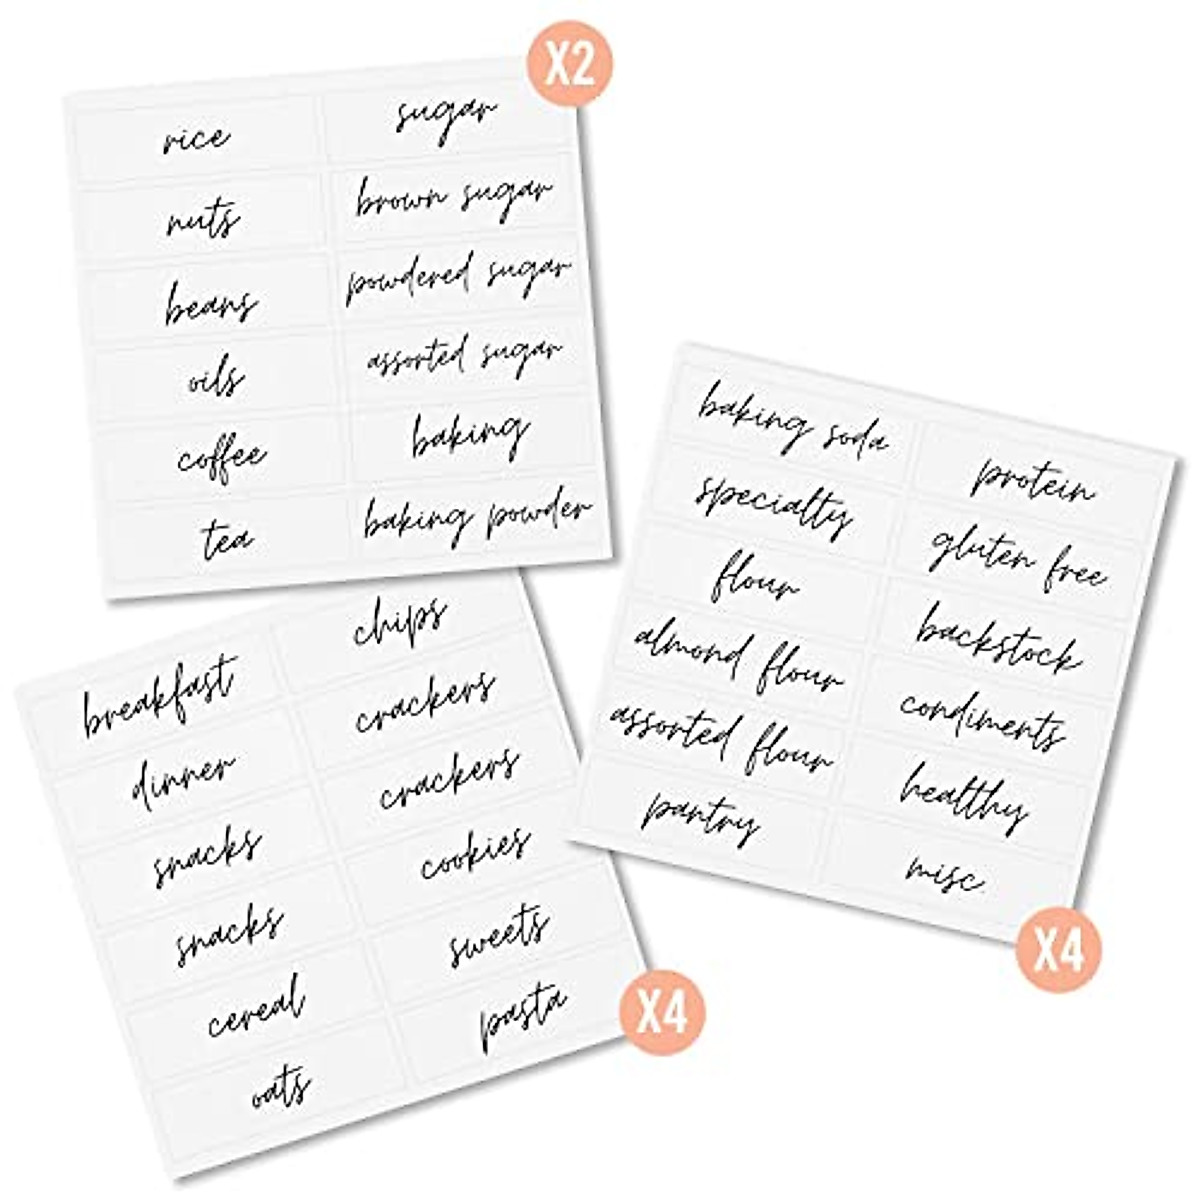 X2
rice
nuts
beans
oils
coffee
tea
sugar
brown sugar
powdered sugar
assorted sugar
baking
baking powder
baking soda
specialty
flour
almond flour
assorted flour
pantry
protein
gluten free
backstock
condiments
healthy
misc.
X4
breakfast
dinner
snacks
snacks
cereal
oats
chips
crackers
crackers
cookies
sweets
pasta
X4